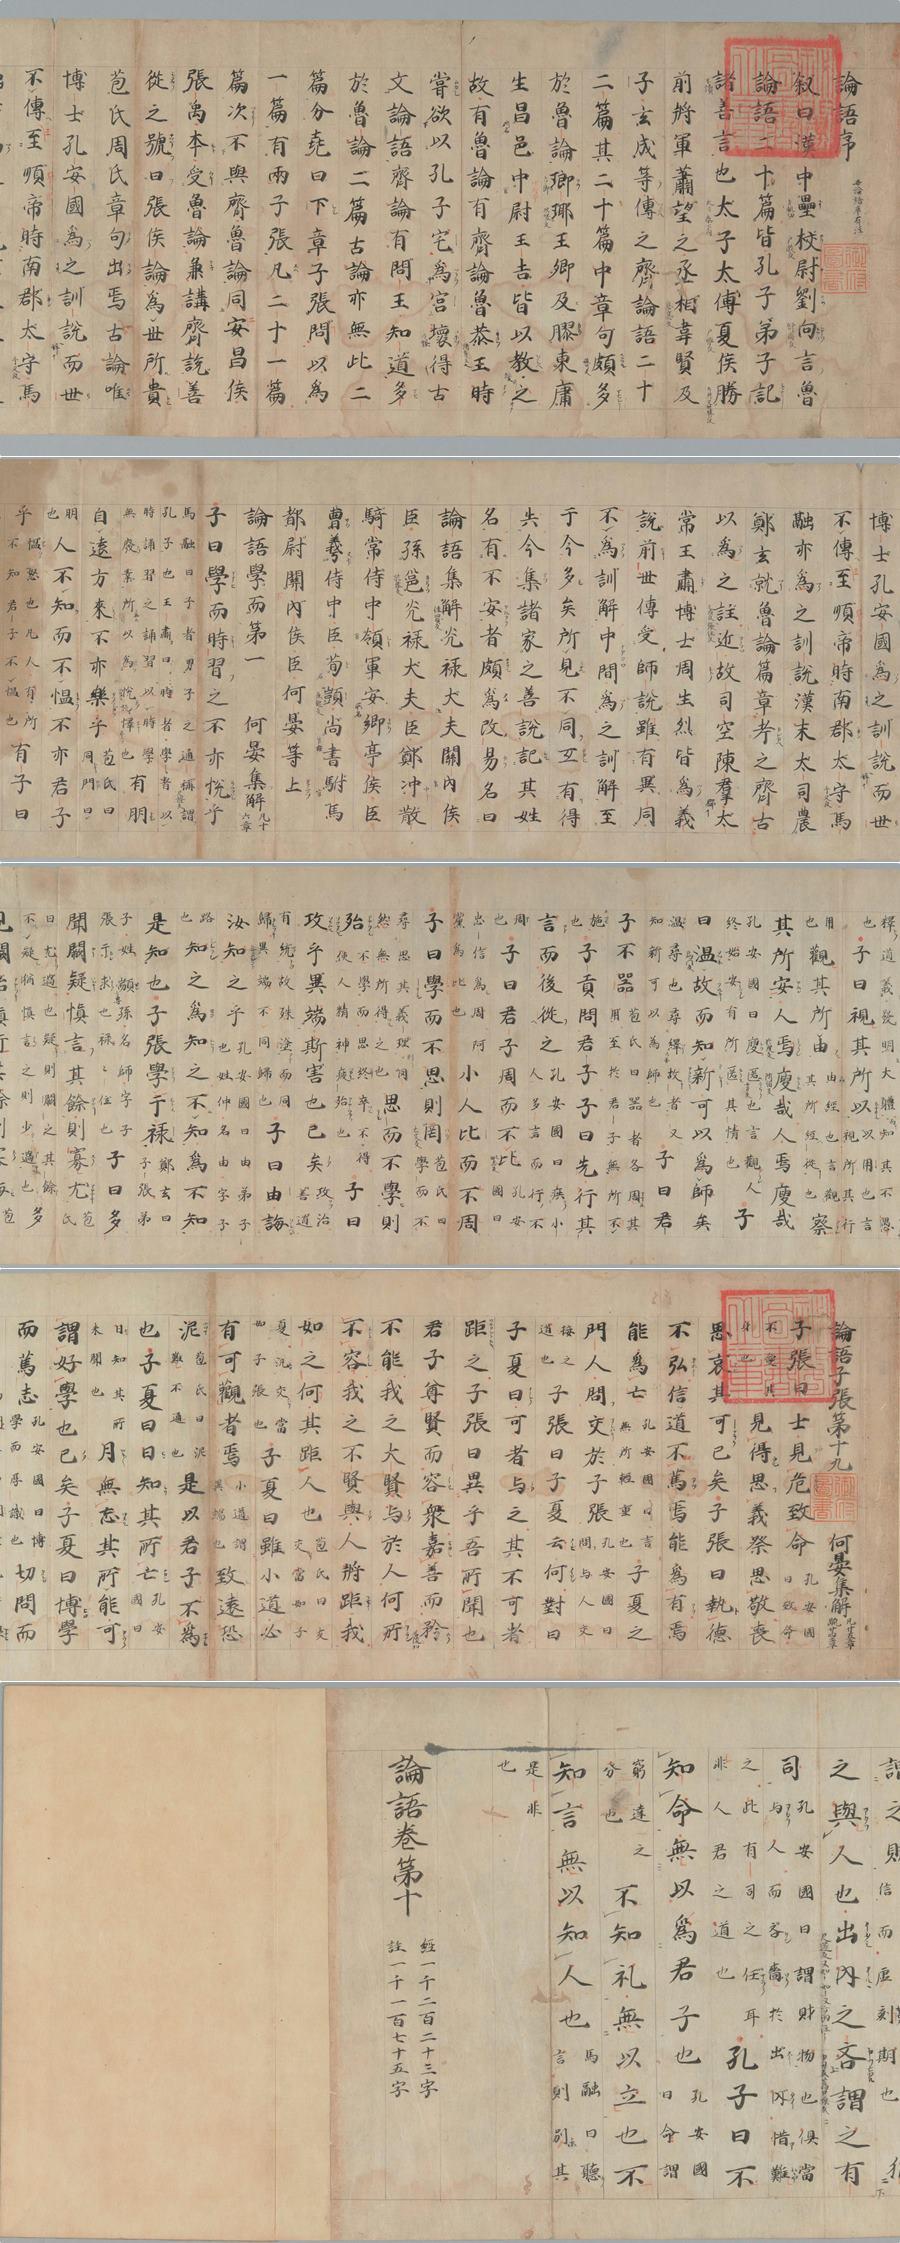 論語序
叙曰漢中壘校尉劉向言魯
論語二十篇皆孔子弟子記
諸善言也太子太傅夏侯勝
前將軍蕭望之丞相韋賢及
子玄成等傳之齊論語二十
二篇其二十篇中章句頗多
於魯論瑯琊王卿及膠東庸
生昌邑中尉王吉皆以教之
故有魯論有齊論魯恭王時
嘗欲以孔子宅為宮壞得古
文論語齊論有問王知道多
於魯論二篇古論亦無此二
篇分堯曰下章子張問以為
一篇有兩子張凡二十一篇
篇次不與齊魯論同安昌侯
張禹本受魯論兼講齊說善
從之號曰張侯論為世所貴
苞氏周氏章句出焉古論唯
博士孔安國為之訓說而世
不傳至順帝時南郡太守馬
博士孔安國為之訓說而世
不傳至順帝時南郡太守馬
融亦為之訓說漢末太司農
鄭玄就魯論篇章考之齊古
以為之註近故司空陳羣太
常王肅博士周生烈皆為義
說前世傳受師說雖有異同
不為訓解中間為之訓解至
于今多矣所見不同互有得
失今集諸家之善說記其姓
名有不安者頗為改易名曰
論語集解光祿大夫關內侯
臣孫邕光祿大夫臣鄭沖散
騎常侍中領軍安鄉亭侯臣
曹羲侍中臣荀顗尚書駙馬
都尉關內侯臣何晏等上
論語學而第一 何晏集解凡十六章
子曰學而時習之不亦悅乎
馬融曰子者男子之通稱謂
孔子也王肅曰時者學者以
時誦習之誦習以時學
無廢業所以為悅懌也有朋
自遠方來不亦樂乎苞氏曰同門曰
明也人不知而不慍不亦君子
乎慍怒也凡人有所不知君子不慍也有子曰
釋道義發明大體知其不愚
也子曰視其所以以用也言視所其行
用也觀其所由由經也言觀其所經從也察
其所安人焉廋哉人焉廋哉
孔安國曰廋匿也言觀人
終始安有所匿其情也子
曰溫故而知新可以為師矣
溫尋也尋繹故者又
知新可以為師也子曰君
子不器苞氏曰器者各周其用至於君子無所不
施也子貢問君子子曰先行其
言而後從之孔安國曰疾小人多言而行不
周也子曰君子周而不比孔安國曰
忠信為周阿黨為比也小人比而不周
子曰學而不思則罔苞氏曰學而不
尋思其義理罔然無所得之也思而不學則
殆不學而思終卒不得使人精神疲殆也子曰
攻乎異端斯害也已矣攻治善道
有統故殊塗而同歸異端不同歸也子曰由誨
汝知之乎孔安國曰弟子也姓仲名由字子
路也知之為知之不知為不知
是知也子張學干祿鄭玄曰子張弟
子姓顓孫名師字子張干求也祿祿位也子曰多
聞闕疑慎言其餘則寡尤苞氏
曰尤過也疑則闕之其餘
不疑猶慎言之則少過也多
論語子張第十九 何晏集解
子張曰士見危致命孔安國曰致命
不愛其身也見得思義祭思敬喪
思哀其可已矣子張曰執德
不弘信道不篤焉能為有焉
能為亡孔安國曰言無所輕重也子夏之
門人問交於子張孔安國曰問與人交
接之道也子張曰子夏云何對曰
子夏曰可者与之其不可者
距之子張曰異乎吾所聞也
君子尊賢而容衆嘉善而矜
不能我之大賢与於人何所
不容我之不賢與人將距我
如之何其距人也苞氏曰友交當如子
夏汎交當如子張也子夏曰雖小道必
有可觀者焉小道謂異端也致遠恐
泥苞氏曰泥難不通也是以君子不為
也子夏曰日知其所亡孔安國曰
日知其所未聞也月無忘其所能可
謂好學也已矣子夏曰博學
而篤志孔安國曰博學而厚識也切問而
謂之則信而虛刻期也
之與人也出內之吝謂之有
司孔安國曰謂財物也俱當与人而吝嗇於出內惜難
之此有司之任耳非人君之道也孔子曰不
知命無以為君子也孔安國曰命謂
窮達之分也不知礼無以立也不
知言無以知人也馬融曰聽言則別其
是非也
論語卷第十
經一千二百二十三字
註一千一百七十五字